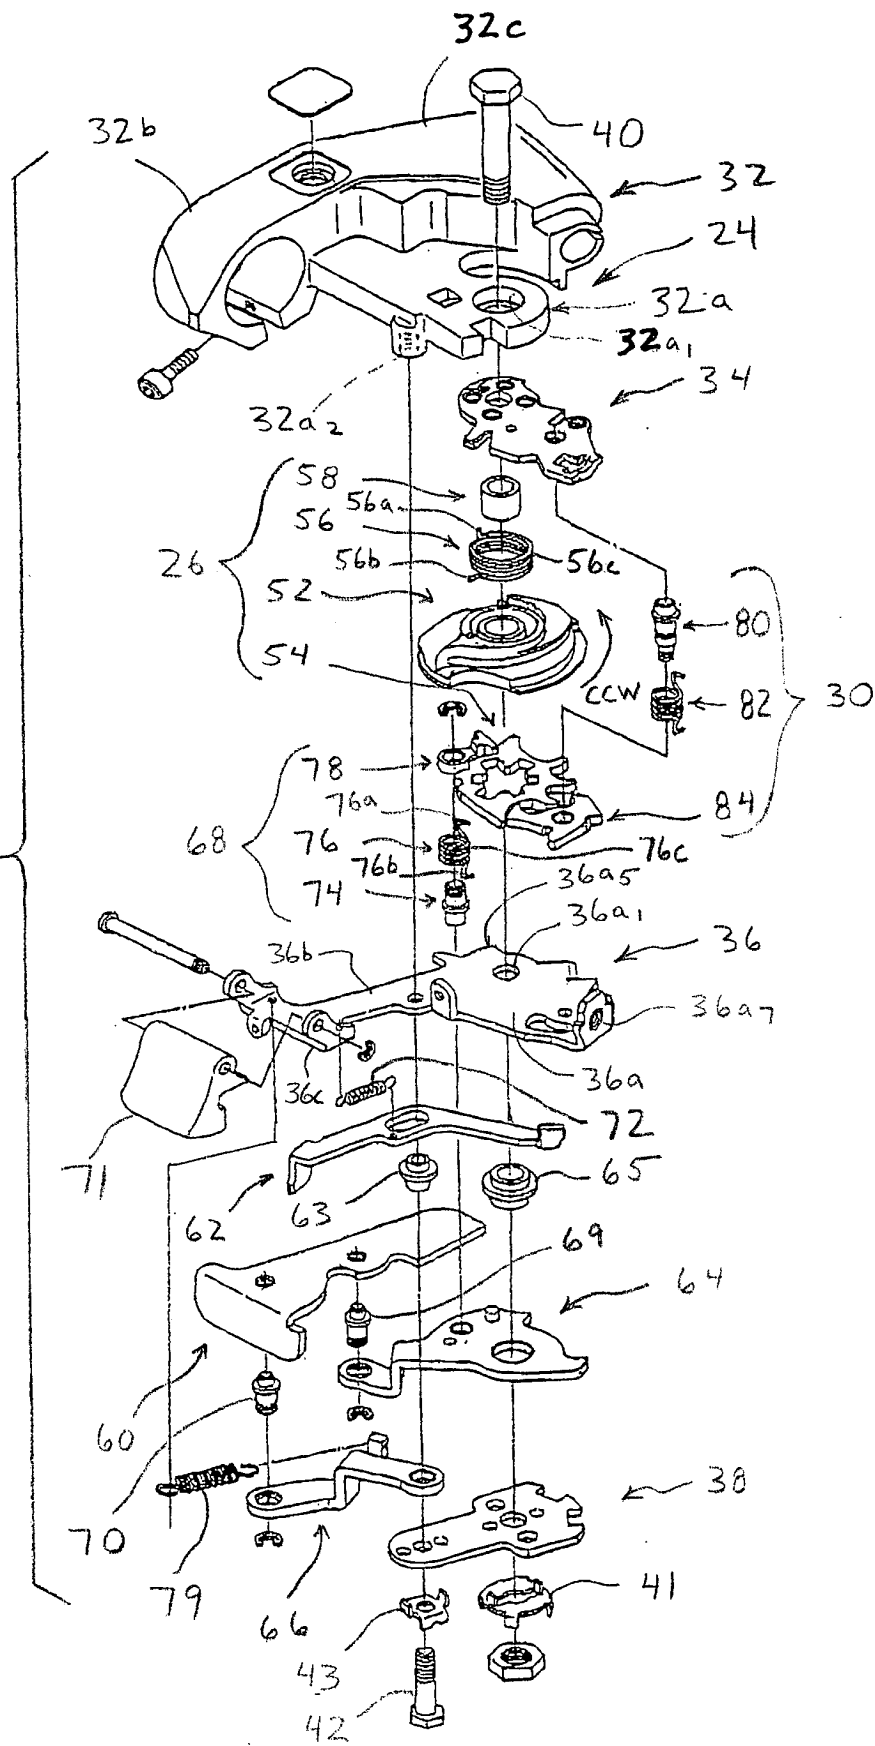 32c
32b
40
32
24
32a
32a1
34
32a2
58
56a
56
56c
26
56b
52
80
54
CCW
82
30
78
76a
84
68
76
76c
76b
74
36a5
36a1
36b
36
36a7
36c
36a
72
71
65
62
63
69
64
60
38
70
79
41
66
43
42